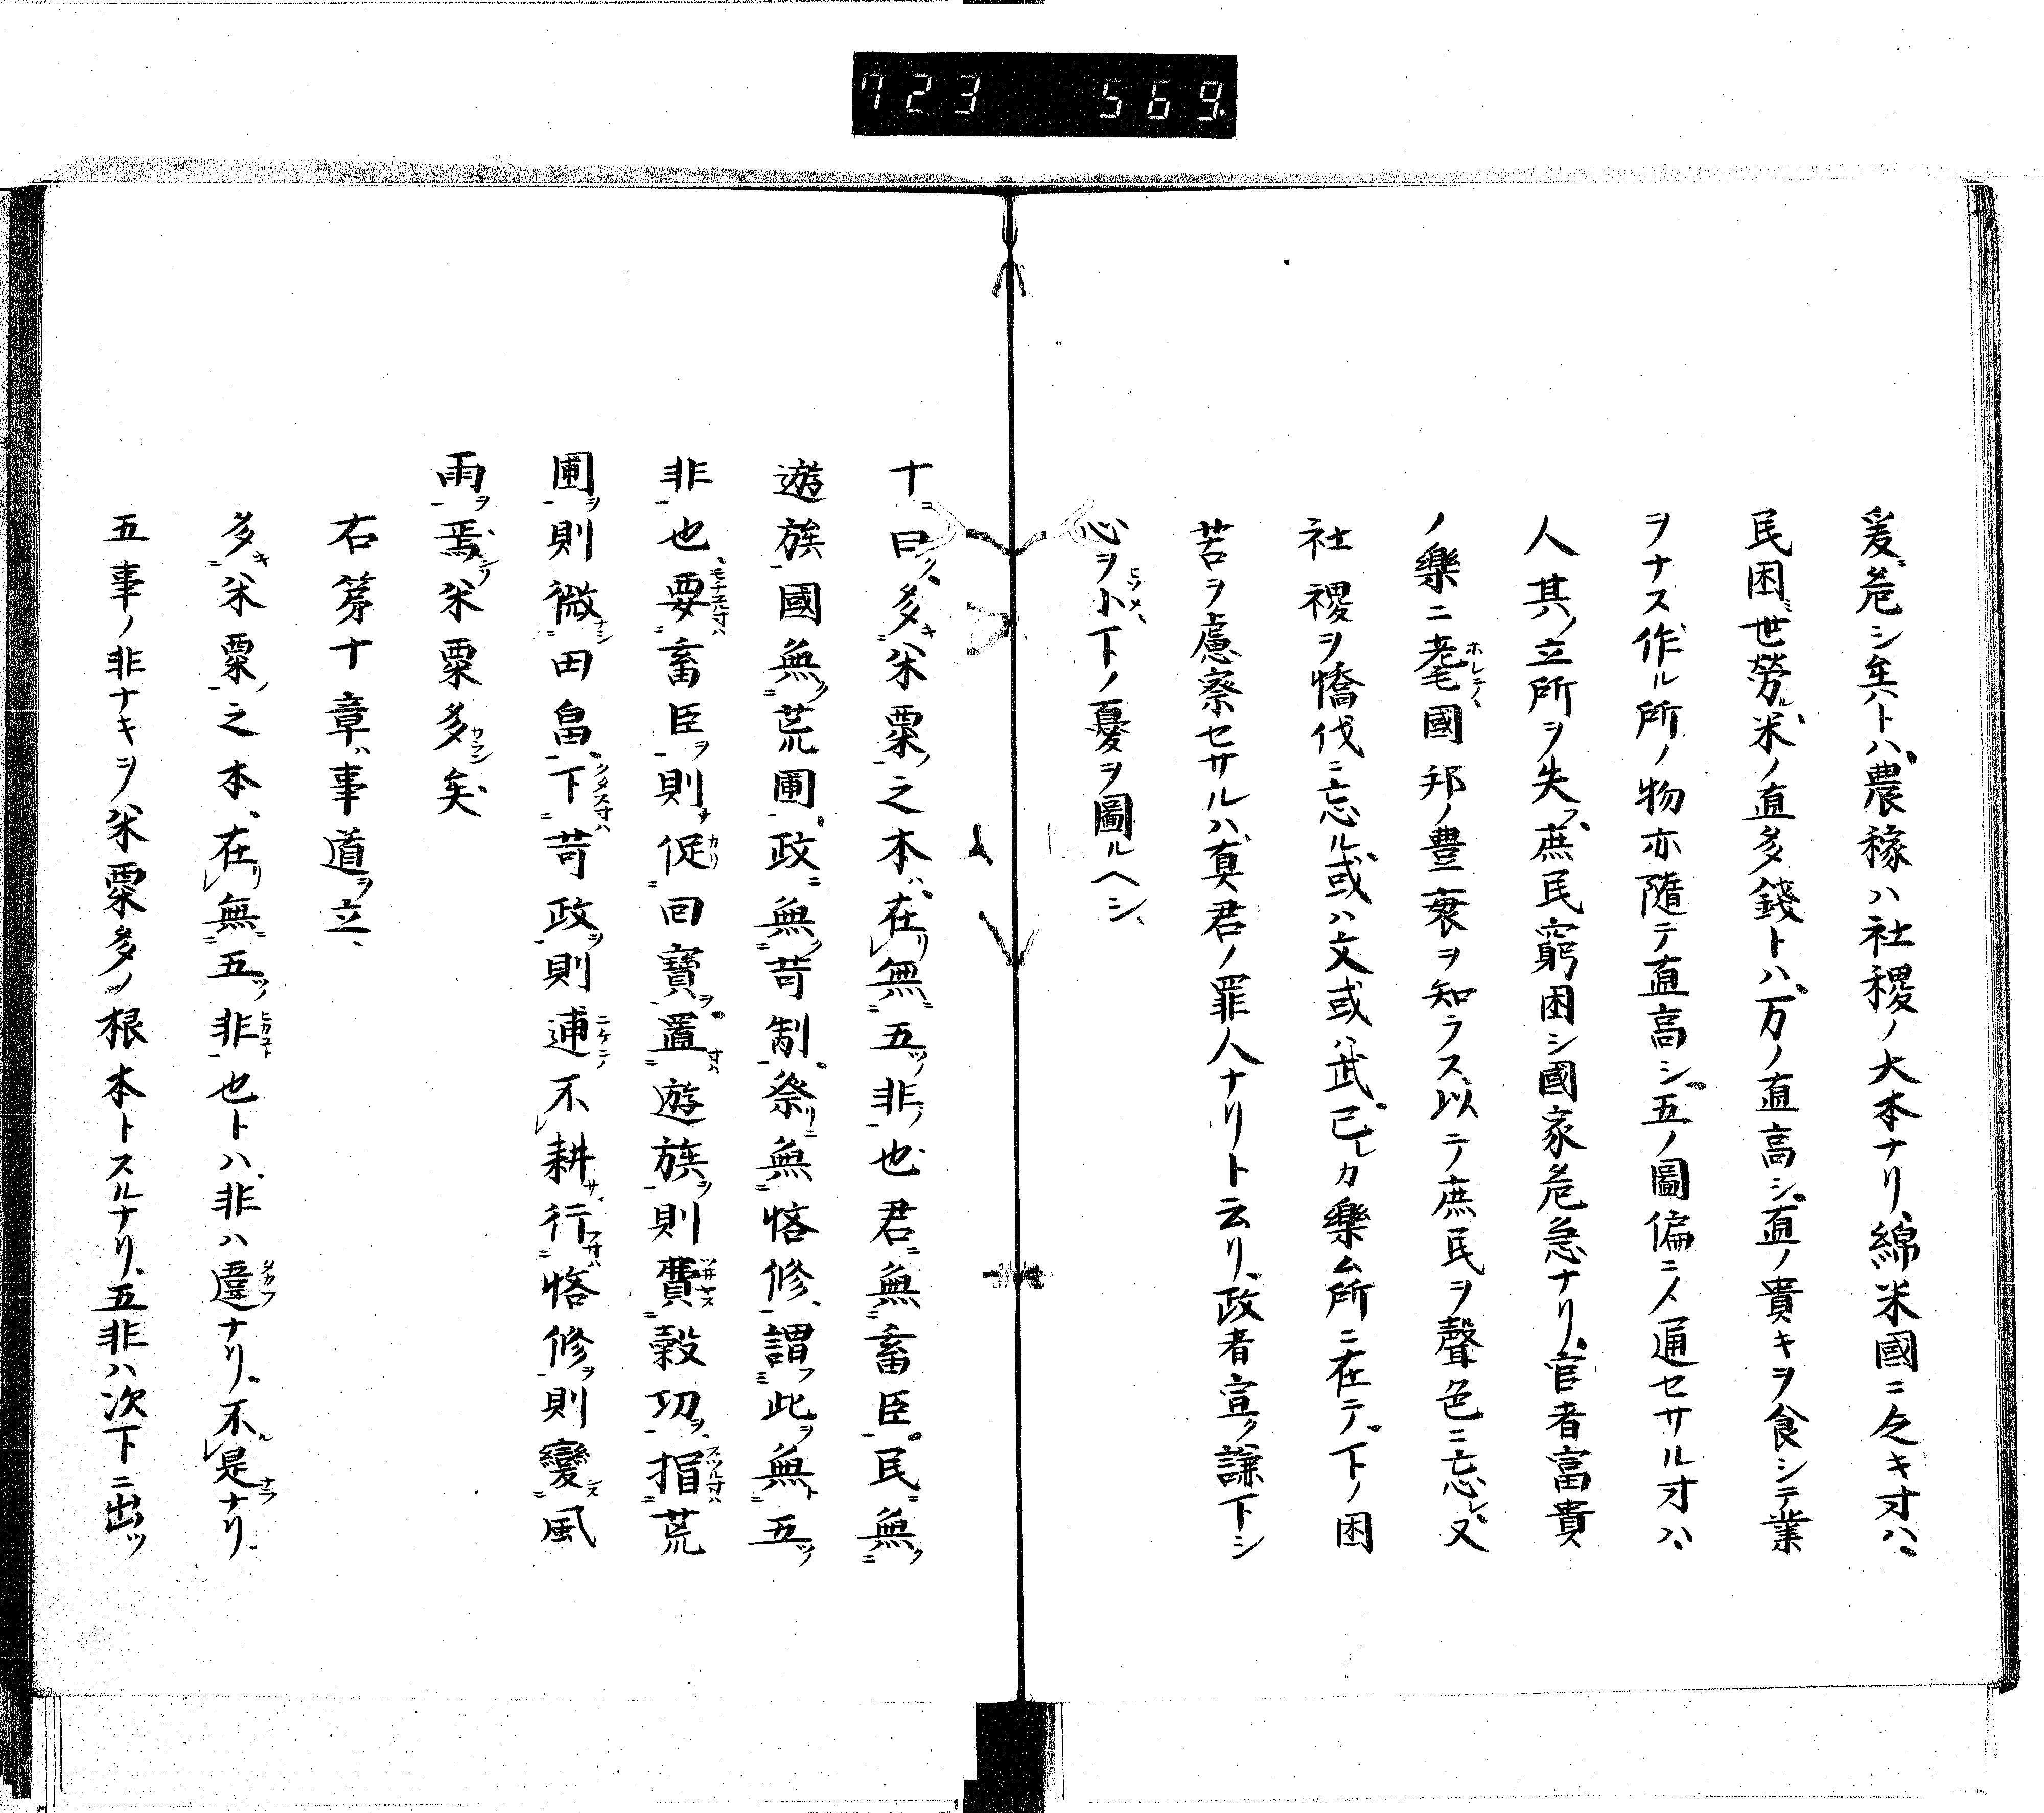 723 569.
爰危シ矣トハ農稼ハ社稷ノ大本ナリ、綿米國ニ乏キ寸ハ、
民困ミ世勞ル、米ノ直多錢トハ、万ノ直高シ、直ノ貴キヲ食シテ業
ヲナス作ル所ノ物亦隨テ直高シ、五ノ圖偏ニメ通セサル寸ハ、
人其ノ立所ヲ失フ、庶民窮困シ國家危急ナリ、官者富貴
ノ樂ニ耄ホレニノ國邦ノ豊衰ヲ知ラス、以テ庶民ヲ聲色ニ忘レ、又
社稷ヲ憍伐ニ忘ル、或ハ文或ハ武、已レカ樂ム所ニ在テ、下ノ困
苦ヲ慮察セサルハ、真君ノ罪人ナリト云リ、政者宣ク謙下シ
心ヲ小ヒソメ、下ノ憂ヲ圖ルヘシ、
十ニ曰ク、多キ米粟ノ之本ハ、在リ無ニ五ツノ非ノ也、君ニ無ク畜臣、民ニ無ク
遊族、國無ク荒圃、政ニ無ク苛制、祭リニ無悋修、謂フ此ヲ無ト五ツノ
非也、要モチユル寸ハ畜臣ヲ則チ促カリ囘寶ヲ、置寸ハ遊族ヲ則費ツ井ヤス穀功ヲ、捐スツル寸ハ荒
圃ヲ則微ナシ田畠、下クタス寸ハ苛政ヲ則逋ニケテ不耕サ、行フ寸ハ悋修ヲ則變ニス風
雨ヲ、焉シソ米粟多カラン矣、
右第十章ハ事道ヲ立、
多キ米粟ノ之本、在リ無ニ五ツノ非ヒカコト也トハ、非ハ違タカフナリ、不ル是ナラナリ、
五事ノ非ナキヲ、米粟多ノ根本トスルナリ、五非ハ次下ニ出ツ